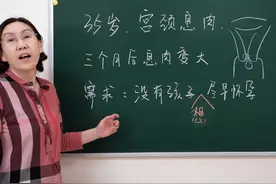 35岁、宫颈息肉、
三个月后息肉变大
需求：没有孩子、尽早怀孕
想